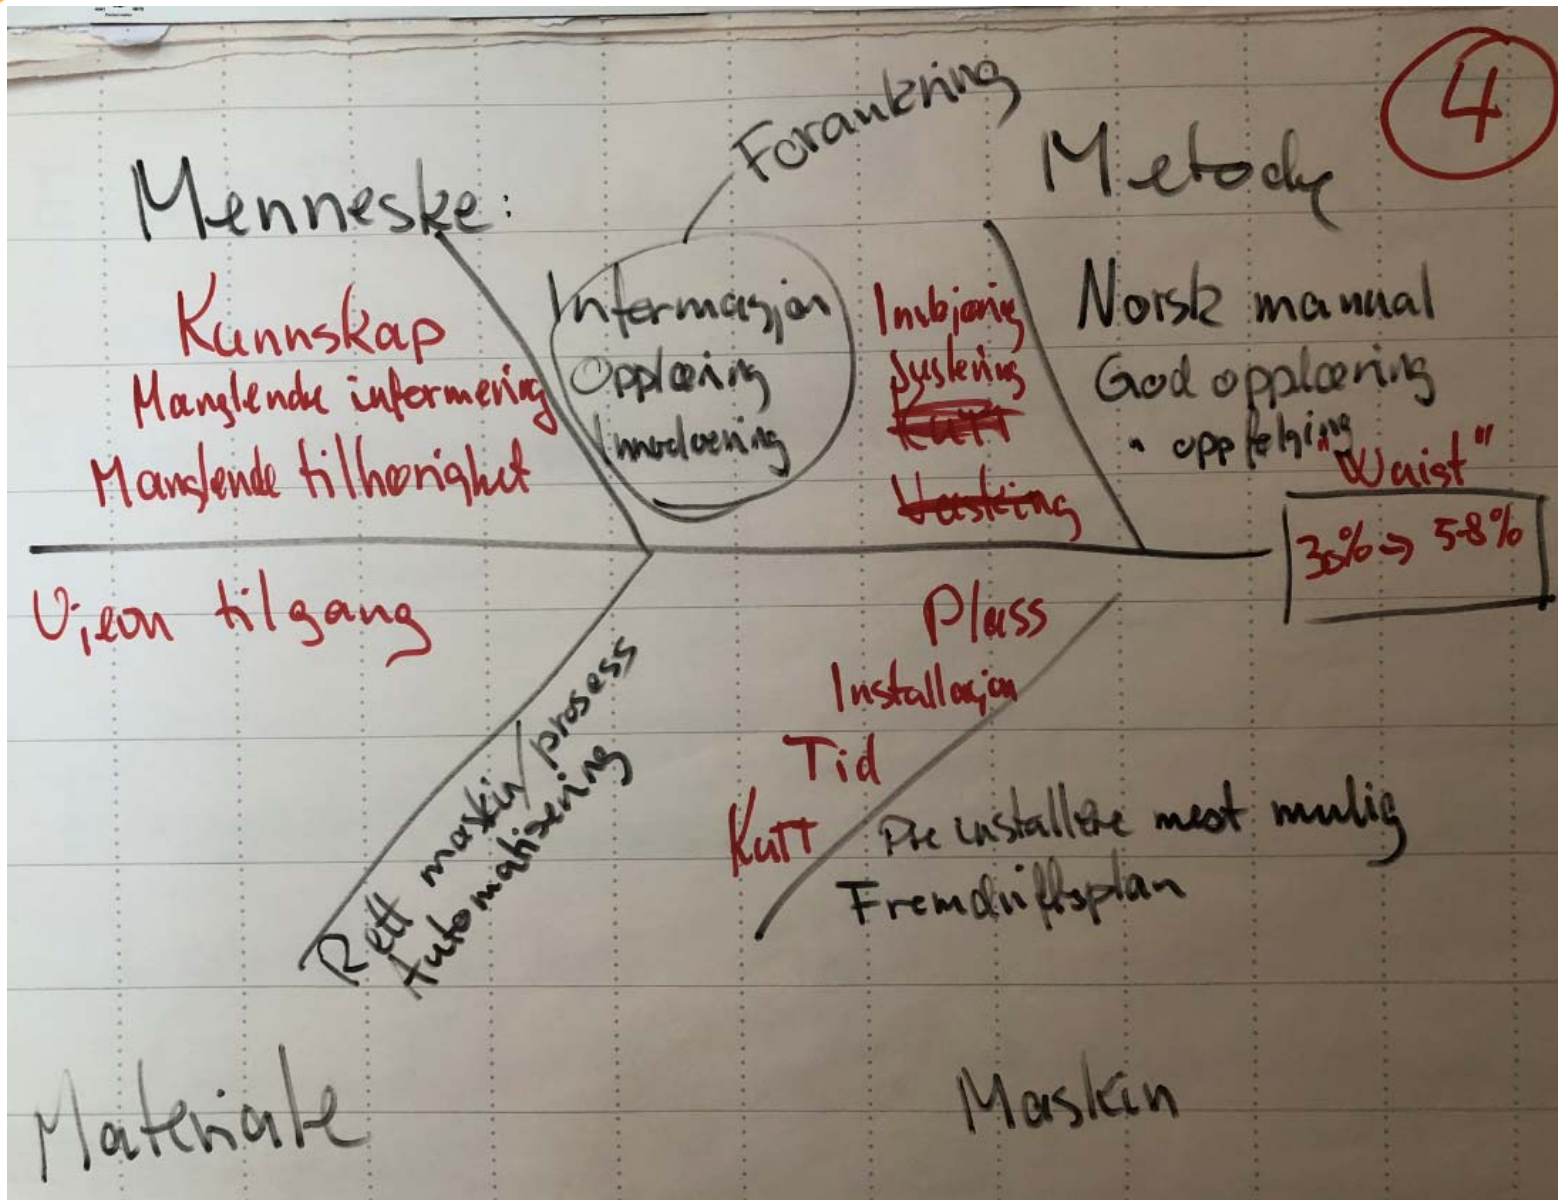 4
Forankring
Menneske:
Metode
Kunnskap
Manglende informering
Manglende tilhørighet
Informasjon
Opplæring
Innkjøring
Justering
Kutt
Vasking
Norsk manual
God opplæring
" oppfølging
"Waist"
30% → 5-8%
Ujevn tilgang
Rett maskin/prosess
Automatisering
Plass
Installasjon
Tid
Kutt
Pre installere mest mulig
Fremdriftsplan
Materiale
Maskin